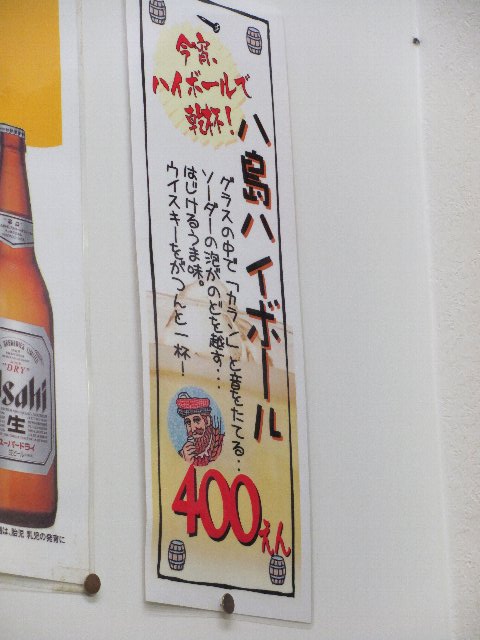 今宵、
ハイボールで
乾杯！
八島ハイボール
グラスの中で「カラン」と音をたてる…
ソーダーの泡がのどを越す…
はじけるうま味。
ウイスキーをがつんと一杯！
400えん
"DRY"
Asahi
生
スーパードライ
は、胎児・乳児の発育に